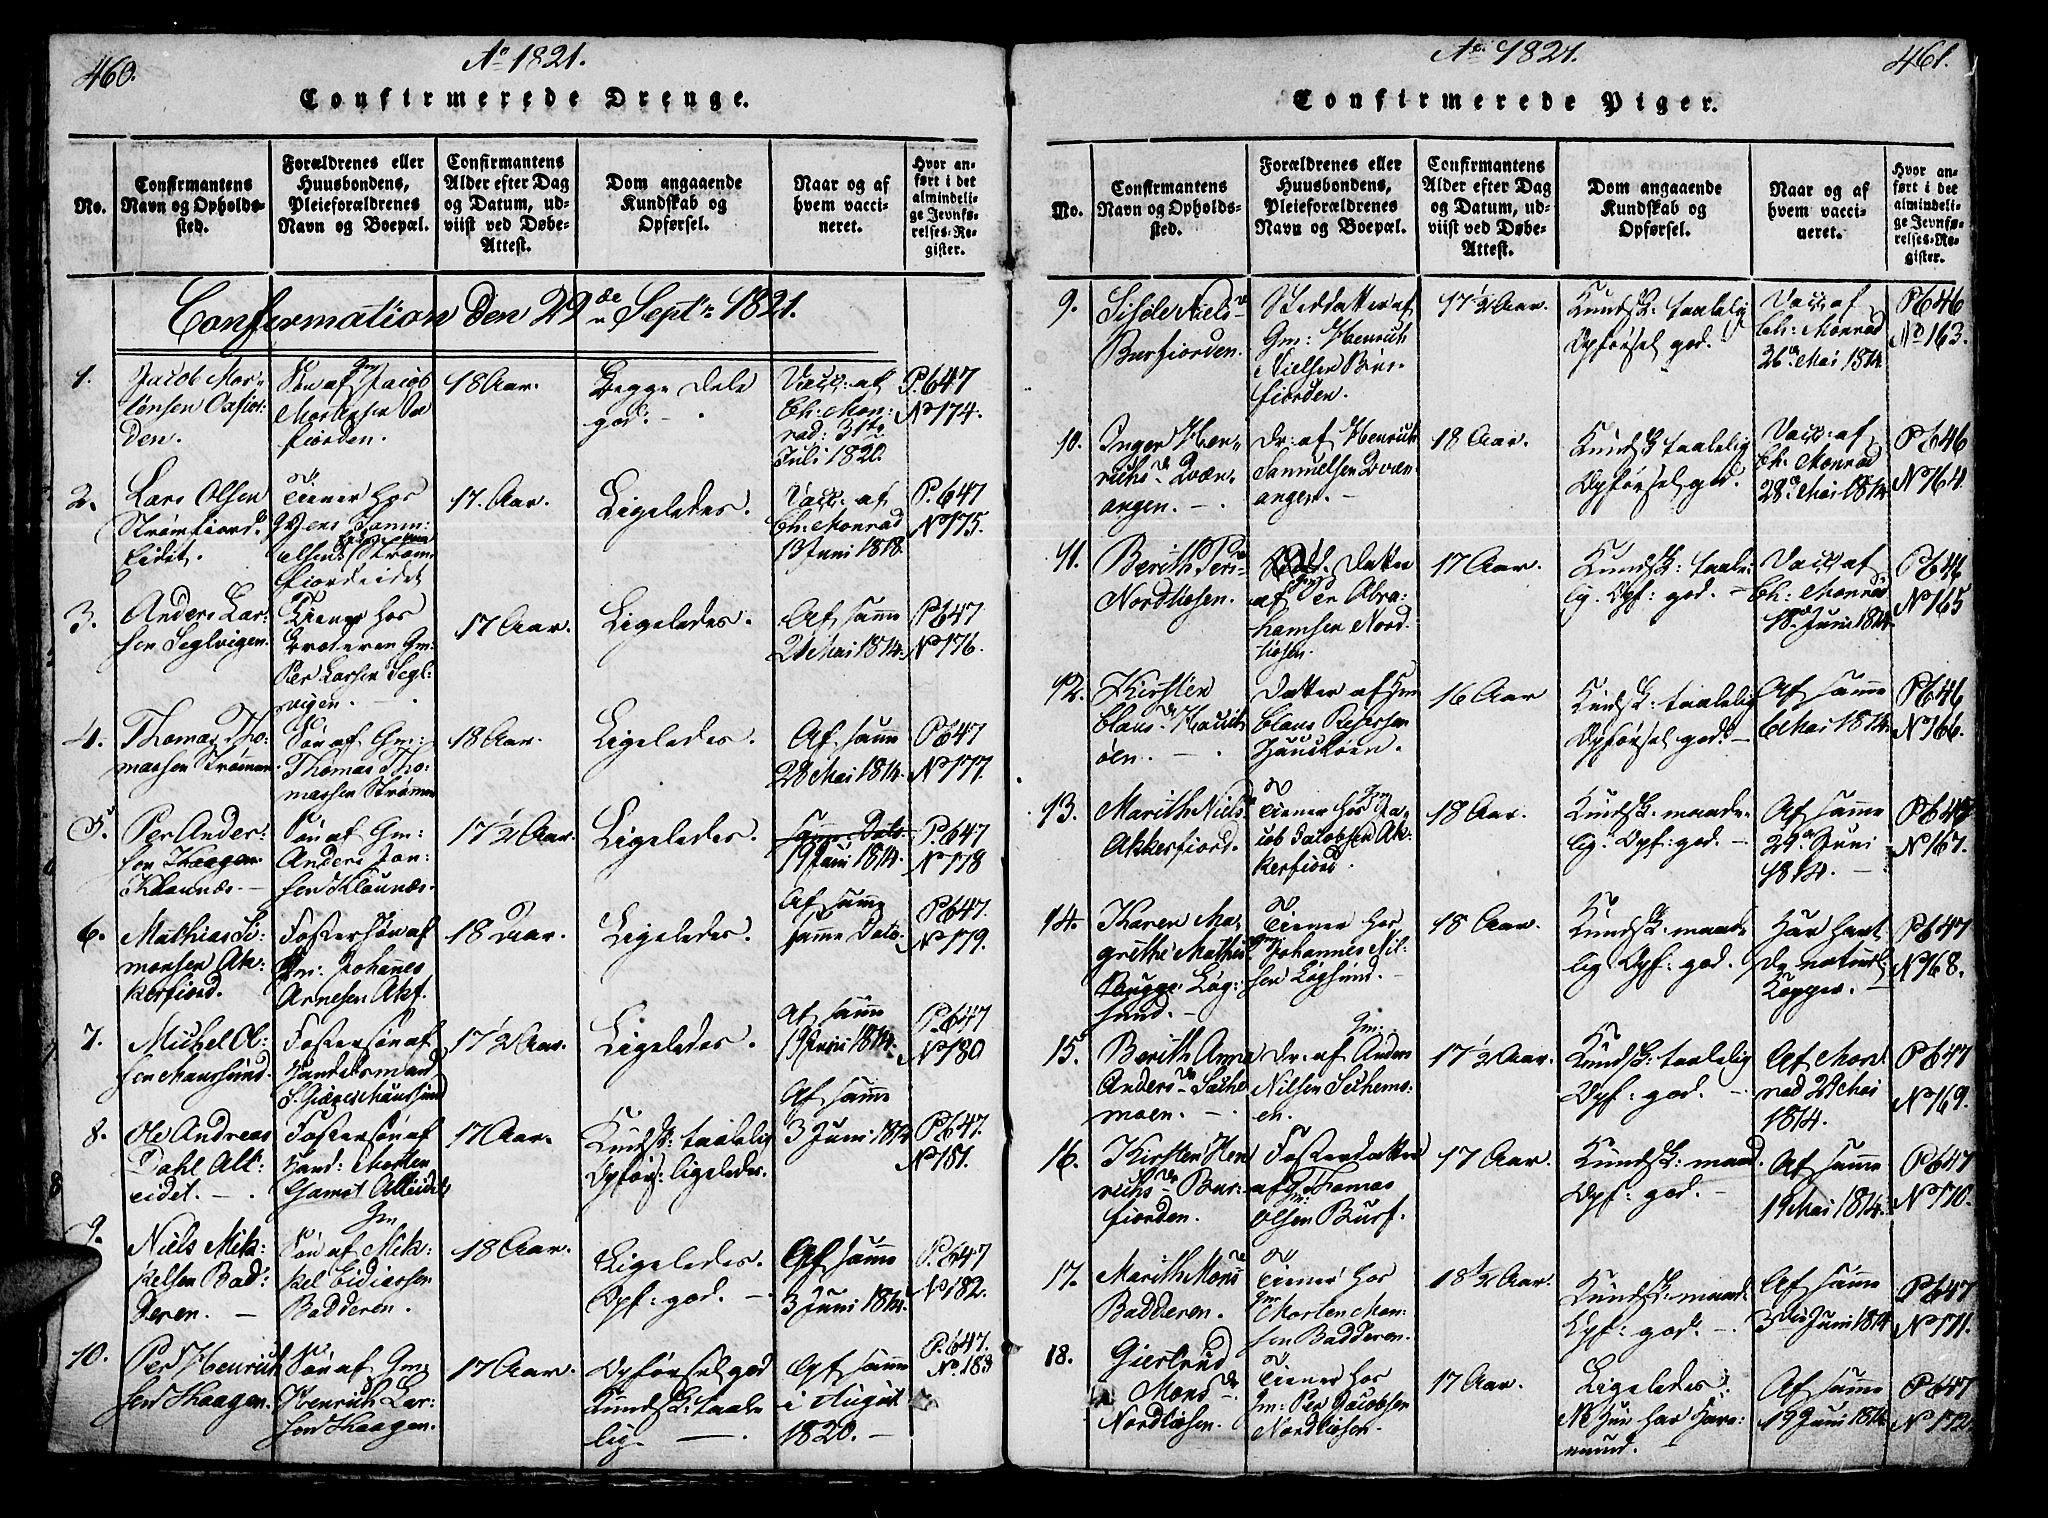 460.
Ao 1821.
Confirmerede Drenge.
No.
Confirmantens
Navn og Opholds-
sted.
Forældrenes eller
Huusbondens,
Pleieforældrenes
Navn og Boepæl.
Confirmantens
Alder efter Dag
og Datum, ud-
viist ved Døbe-
Attest.
Dom angaaende
Kundskab og
Opførsel.
Naar og af
hvem vacci-
neret.
Hvor an-
ført i det
almindeli-
ge Jevnfø-
relses-Re-
gister.
Confirmation den 29de Septr 1821.
1.
Jacob Mor-
tensen Oxfior-
den.
Søn af Gm Jacob
Mortensen
fiorden.
18 Aar.
Begge Dele
god.
Vacc: af
Ch: Mon-
rad: 31te
Juli 1820.
P. 647
No 174.
2.
Lars Olsen
Strømfiord-
eidet.
Tiener hos
Jens Sam-
elsen Strøm-
fiordeidet
17 Aar.
Ligeledes.
Vacc: af
Ch: Monrad
13 Juni 1818.
P. 647
No 175.
3.
Anders Lar-
sen Seglvigen.
Tiener hos
Broderen Gm:
Per Larsen Segl-
vigen.
17 Aar.
Ligeledes.
Af samme
21 Mai 1814.
P. 647
No 176.
4.
Thomas Tho-
massen Strømmen.
Søn af Gm:
Thomas Tho-
massen Strømmen
18 Aar.
Ligeledes.
Af samme
28 Mai 1814.
P. 647
No 177.
5.
Per Ander-
sen Skaagen
Klaunæs.
Søn af Gm:
Anders Jon-
sen Klaunæs.
17 1/2 Aar.
Ligeledes.
19 Juni 1814.
P. 647
No 178
6.
Mathias Si-
monsen Ak-
kerfiord.
Fostersøn af
Gm: Johannes
Arnesen Akf.
18 Aar.
Ligeledes.
Af samme
samme Dato.
P. 647.
No 179.
7.
Michel Ol-
sen Maursund.
Fostersøn af
Handelsmand
Maursund
17 1/2 Aar.
Ligeledes.
Af samme
19 Juni 1814.
P. 647
No 180
8.
Ole Andreas
Dahl Alt-
eidet.
Fostersøn af
Hand: Morten
Gamst Alteidet
17 Aar.
Kundsk: taalelig
Opførs: ligeledes.
Af samme
3 Juni 1814
P. 647.
No 181.
9.
Niels Mik-
kelsen Bad-
deren.
Gm
Søn af Mik-
kel Eidiassen
Badderen.
18 Aar.
Ligeledes.
Opf: god.
Af samme
3 Juni 1814.
P. 647
No 182.
10.
Per Henrich-
sen Skaagen.
Søn af Gm:
Henrich Lar-
sen Skaagen.
17 Aar.
Opførsel god
Kundsk: taale-
lig.
Af samme
i August
1820.
P. 647.
No. 183
Ao 1821.
461.
Confirmerede Piger.
No.
Confirmantens
Navn og Opholds-
sted.
Forældrenes eller
Huusbondens,
Pleieforældrenes
Navn og Boepæl.
Confirmantens
Alder efter Dag
og Datum, ud-
viist ved Døbe-
Attest.
Dom angaaende
Kundskab og
Opførsel.
Naar og af
hvem vacci-
neret.
Hvor an-
ført i det
almindeli-
ge Jevnfø-
relses-Re-
gister.
9.
Niels
Burfiorden.
Steddatter af
Gm: Henrich
Nielsen Bur-
fiorden.
17 1/2 Aar.
Kundsk: taalelig
Opførsel god.
Vacc: af
Ch: Monrad
26de Mai 1814.
P. 646
No 163.
10.
Inger Hen-
richsdr Qvæn-
angen.
Dr: af Henrich
Samuelsen Qvæn-
angen.
18 Aar.
Kundsk: taalelig
Opførsel god.
Vacc: af
Ch: Monrad
28de Mai 1814
P. 646
No 164.
11.
Berith Pers-
Nordkiosen.
Datter
af Gm Per Abra-
hamsen Nord-
kiosen.
17 Aar.
Kundsk: taale-
lig. Opf: god.
Vacc: af
Ch: Monrad
18 Juni 1814.
P. 646
No 165
12.
Kirsten
Clausdr Hauk-
øen.
Datter af Gm
Claus
Haukøen.
16 Aar
Kundsk: taalelig
Opførsel god.
Af samme
6 Mai 1814.
P. 646
No 166.
13.
Marith Niels-
Akkerfiord.
Tiener hos Gm Ja-
cob Jacobsen Ak-
kerfiord
18 Aar.
Kundsk: maade-
lig. Opf: god.
Af samme
29de Juni
1814.
No 167.
14.
Karen Ma-
grethe Mathis
Løg-
sund.
Tiener hos
Gm Johannes Nil-
sen Løgsund.
18 Aar.
Kundsk: maade-
lig. Opf: god.
Har havt
de naturl:
Kopper.
P. 647
No 168.
15.
Berith Anne
Andersdr
moen.
Gm:
Dr: af Anders
Nilsen
en.
17 1/2 Aar.
Kundsk: taalelig
Opf: god.
Af Mon-
rad 29 Mai
1814.
P. 647
No 169.
16.
Kirsten Hen
richsdr Bur-
fiorden.
Fosterdatter
af Gm: Thomas
Olsen Burf.
17 Aar.
Kundsk: maad
Opf: god.
Af samme
19 Mai 1814.
P. 647
No 170.
17.
Marith Mons
Badderen.
Tiener hos
Gm Morten Mon-
sen Badderen.
18 1/2 Aar.
Kundsk: maad.
Opf: god.
Af samme
3die Juni 1814
P. 647
No 171.
18.
Giertrud
Monsdr
Nordkiosen.
Tiener hos
Gm: Per Jacobsen
Nordkiosen.
17 Aar.
Ligeledes
Af samme
19 Juni 1814.
P. 647
No 172.